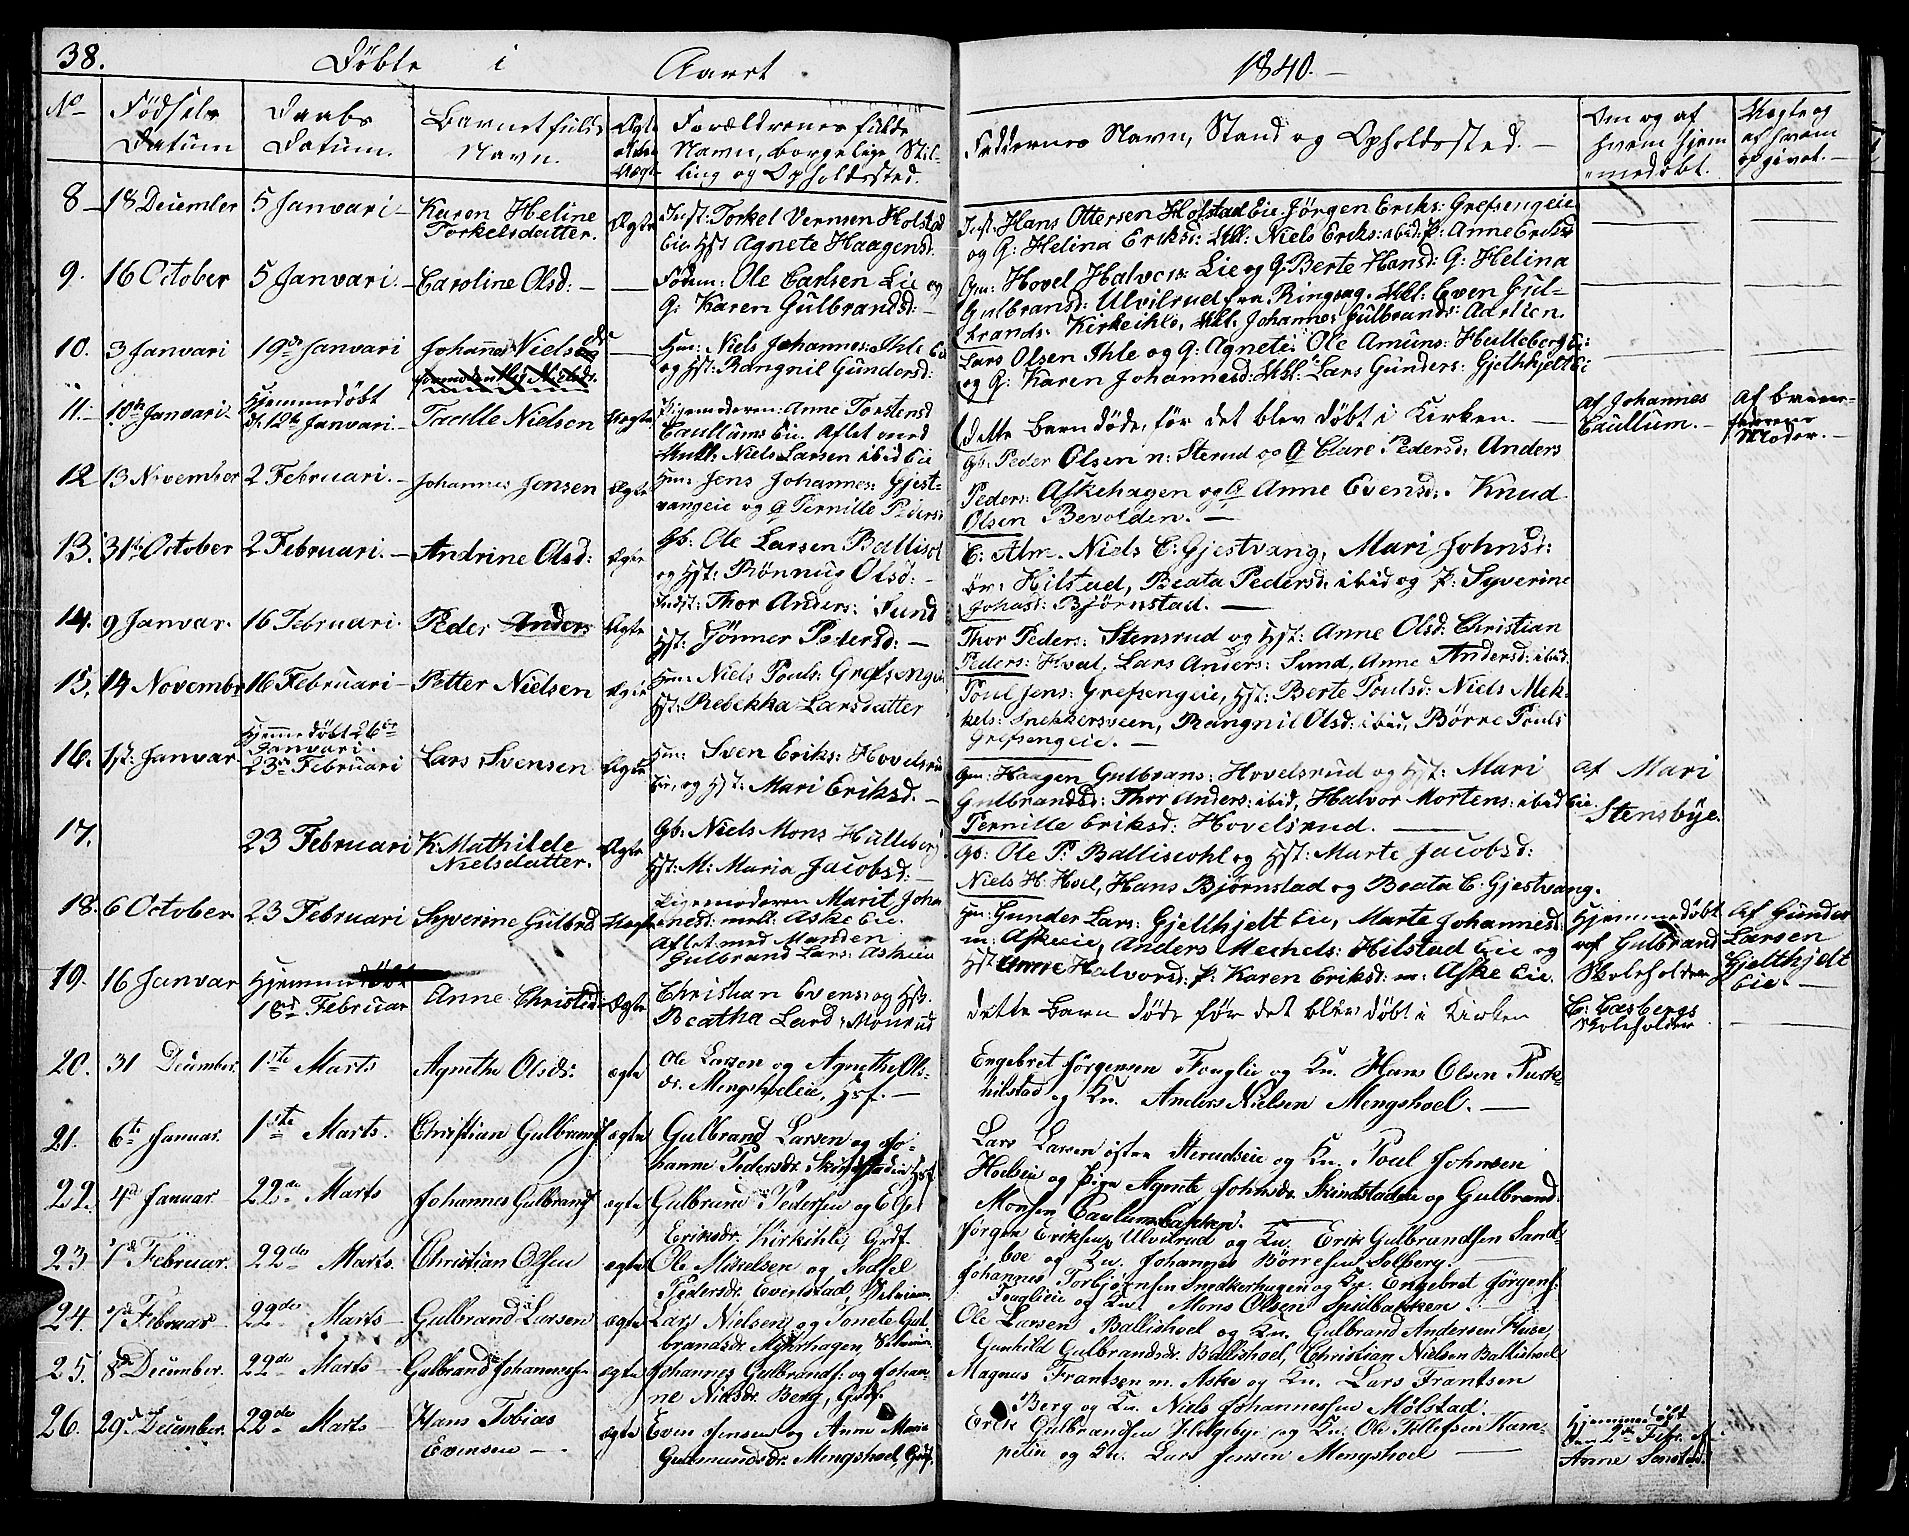 38. Döbte i Aaret 1840.
No Födsels Datum Daabs Datum. Barnets fulde Navn. Ægte eller Uægte Forældrenes fulde Navn, borgelige Stilling og Opholdssted. Faddernes Navn, Stand og Opholdssted. Om og af hvem hjemmedöbt. Uægte og af hvem opgivet.
8 18 December 5 Januari Karen Heline Torkelsdatter. Ægte Inst: Torkel Versen Holstad Eie Hst Agnete Haagensd:
Inst: Hans Ottersen Hofstad Eie Jörgen Eriks: Grefsengeie
og G: Helina Eriksd: Ukl: Niels Eriks: ibid: P: Anne Eriksd
9. 16 October 5 Januari. Caroline Olsd: Ole Carlsen Lie og
G: Karen Gulbrandsd:
Gm: Hovel Halvors: Lie og G: Berte Hansd: G: Helina
Gulbransd: Ulvilrud fra Ringsag. Ukl: Even Gul-
brands: Kirkeihle, Ukl. Johannes Gulbrands: Adslien.
10. 3 Januari 19de Januari Johannes Niels Hm: Niels Johannes: Ihle Eie
og Hst: Rangnil Gundersd:
Lars Olsen Ihle og G: Agnete: Ole Amuns: Hulleberg Ei:
og G: Karen Johannesd: Ukl: Lars Gunders: Gjelthjelt Ei
11. 10de Januari. Hjemmedöbt d. 12te Januari. Taalle Nielsen Uægte Pigemoderen: Anne Torstensd
Caullums Eie. Aflet med
Ukl: Niels Larsen ibid Eie
dette Barn döde, för det blev döbt i Kirken.
af Johannes Caullum.
Af Moder.
12 13 November 2 Februari. Johannes Jensen Ægte Hm: Jens Johannes: Gjest-
vangeie og G Pernille Peders:
Gb: Peder Olsen n: Sterud og G Clare Pedersd: Anders
Peders: Askehagen og G: Anne Evensd:. Knud
Olsen Bevolden.
13. 31te October 2 Februari. Andrine Olsd: Ægte Gb: Ole Larsen Ballishol
og Hst: Rönnug Olsd:
E: Alm. Niels C: Gjestvang, Mari Johnsd:
ör: Hilstad, Beata Pedersd: ibid og P: Syverine
Johasd: Björnstad.
14. 9 Januar. 16 Februari. Peder Anders Ægte Indst: Thor Anders: Sund
Hst: Jönner Pedersd:
Thor Peders: Stensrud og Hst: Anne Olsd: Christian
Peders: Hoel, Lars Anders: Sund, Anne Andersd: ibid.
15. 14 Novembr 16 Februari Petter Nielsen Ægte Hm: Niels Pouls: Grefsengeie
Hst: Rebekka Larsdatter
Poul Jens: Grefsengeie, Hst: Berte Poulsd: Niels Mek-
kels: Snekkersveen, Rangnil Olsd: ibid, Börre Pouls
Grefsengeie.
16. 1st: Januar. Hjemmedöbt 26de Januari. 23de Februari Lars Svensen Ægte Hm: Sven Eriks: Hovelsrud
Eie, og Hst: Mari Eriksd.
Gm: Haagen Gulbrans: Hovelsrud og Hst: Mari
Gulbrandsd: Thor Anders: ibid, Halvor Mortens: ibid Eie.
Pernille Eriksd: Hovelsrud.
af Mari Stensbye.
17. 23 Februari K: Mathilde Nielsdatter. Ægte Gb: Niels Mons Hulleberg
Hst: M: Maria Jacobsd:
Gb: Ole P: Ballishohl og Hst: Marte Jacobsd:
Niels H: Hoel, Hans Björnstad og Beata C: Gjestvang.
18. 6 October 23 Februari Syverine Gulbrd Uægte Pigemoderen Marit Joha
nesd: mell: Aske Eie.
Aflet med Manden
Gulbrand Lars: Askeeie
Hm: Gunder Lars: Gjelthjelt Eie, Marte Johannesd:
m: Askeeie, Anders Mechels: Hilstad Eie og
Hst Anne Halvorsd: P: Karen Eriksd: m: Aske Eie.
Hjemmedöbt af Gulbrand Skoleholder
Af Gunder Larsen Gjelthjelt Eie.
19. 16 Januar Hjemme 18de Februar Anne Christid: Ægte Christian Evens: og Hst.
Beatha Larsd: Monrud
dette Barn döde för det blev döbt i Kirken
C: Casbergs Skoleholder
20. 31 December. 1ste Marts Agnethe Olsdr. ægte Ole Larsen og Agnethe Ols-
dr. Mengshoeleie, Hsf.
Engebret Jörgensen Fouglie og Kn. Hans Olsen Rusk-
hilstad og Kn. Anders Nielsen Mengshoel.
21. 6te Januar. 1ste Marts. Christian Gulbrands ægte Gulbrand Larsen og Jo-
hanne Pedersdr. Skindstadeie Hsf.
Lars Larsen östre Sterudseie og Kn. Poul Johnsen
Hoelseie og Pige Agnete Johnsdr. Skindstadeie og Gulbrand
Monsen Caulumsbakken.
22. 4de Januar 22de Marts Johannes Gulbrands ægte Gulbrand Pedersen og Else
Eriksdr. Kirkihle, Grdf.
Jörgen Eriksen Ulvilrud og Kn. Erik Gulbrandsen Sand-
boe og Kn. Johannes Börresen Solberg.
23 7de Februar. 22de Marts. Christian Olsen ægte Ole Mikelsen og Sidsel
Pedersdr. Evenstad, Selveier.
Johannes Torbjörnsen Snedkerhagen og Kn. Engebret Jörgens:
Fouglieie og Kn. Mons Olsen Spidbakken.
24. 7de Februar 22de Marts Gulbrand Larsen ægte Lars Nielsen og Tonete Gul-
brandsdr. Myhrhagen, Selveier
Ole Larsen Ballishoel og Kn. Gulbrand Andersen Huse,
Gunhild Gulbrandsdr. Ballishoel, Christian Nielsen Ballishoel
25. 8de December. 22de Marts Gulbrand Johannessen ægte Johannes Gulbrands: og Johan-
ne Nilsdr. Berg, Grdf.
Magnus Frantsen m. Aske og Kn. Lars Frantsen
Berg og Kn. Niels Johannessen Molstad
26. 29de December. 22de Marts Hans Tobias Evensen ægte Even Jensen og Anne Marie
Gudmundsdr. Mengshoel, Grdf.
Erik Gulbrandsen Helgebye og Kn. Ole Tollefsen Kam-
pelin og Kn. Lars Jensen Mengshoel
Hjemmedöbt den 2de Febr. af Anne Sonstad